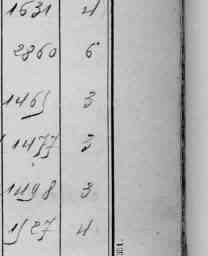 1631 4
2860 6
1465 3
1477 3
1498 3
1527 4